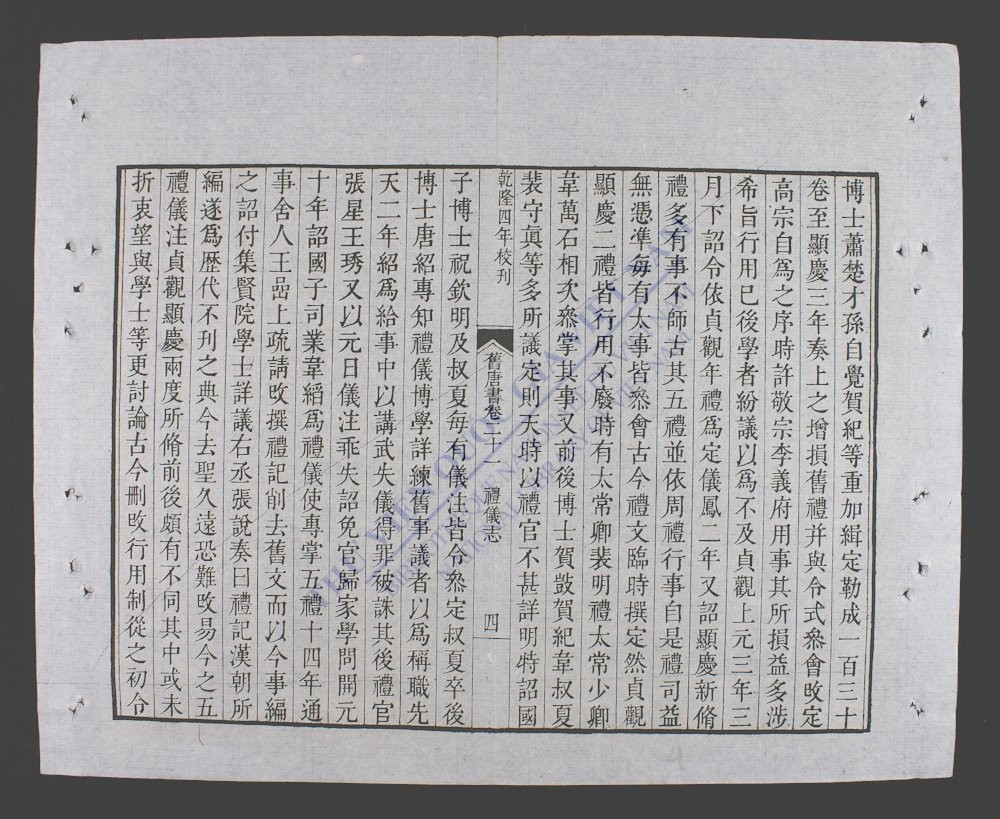 博士蕭楚才孫自覺賀紀等重加緝定勒成一百三十
卷至顯慶三年奏上之增損舊禮并與令式叅會攺定
高宗自爲之序時許敬宗李義府用事其所損益多涉
希旨行用已後學者紛議以爲不及貞觀上元三年三
月下詔令依貞觀年禮爲定儀鳳二年又詔顯慶新脩
禮多有事不師古其五禮並依周禮行事自是禮司益
無憑凖每有大事皆叅會古今禮文臨時撰定然貞觀
顯慶二禮皆行用不廢時有太常卿裴明禮太常少卿
韋萬石相次叅掌其事又前後博士賀敱賀紀韋叔夏
裴守眞等多所議定則天時以禮官不甚詳明特詔國
乾隆四年校刊
舊唐書卷二十 禮儀志 四
子博士祝欽明及叔夏每有儀注皆令叅定叔夏卒後
博士唐紹專知禮儀博學詳練舊事議者以爲稱職先
天二年紹爲給事中以講武失儀得罪被誅其後禮官
張星王琇又以元日儀注乖失詔免官歸家學問開元
十年詔國子司業韋縚爲禮儀使專掌五禮十四年通
事舍人王嵒上疏請攺撰禮記削去舊文而以今事編
之詔付集賢院學士詳議右丞張說奏曰禮記漢朝所
編遂爲歷代不刊之典今去聖久遠恐難攺易今之五
禮儀注貞觀顯慶兩度所脩前後頗有不同其中或未
折衷望與學士等更討論古今刪攺行用制從之初令